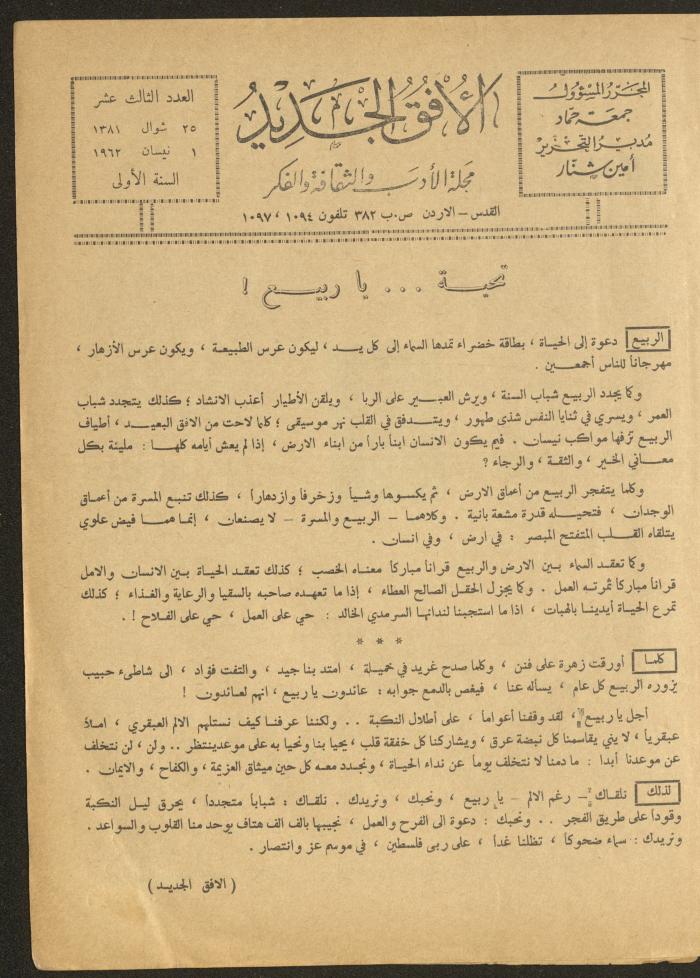 المحرر المسؤول
جمعة حماد
مدير التحرير
أمين شنار
الأفق الجديد
مجلة الأدب والثقافة والفكر
القدس – الاردن ص.ب ٣٨٢ تلفون ١٠٩٤ ، ١٠٩٧
العدد الثالث عشر
٢٥ شوال ١٣٨١
١ نيسان ١٩٦٢
السنة الأولى
تحية ... يا ربيع !
الربيع دعوة إلى الحياة ، بطاقة خضراء تمدها السماء إلى كل يد ، ليكون عرس الطبيعة ، ويكون عرس الأزهار ،
مهرجاناً للناس أجمعين .
وكما يجدد الربيع شباب السنة ، ويرش العبير على الربا ، ويلقن الأطيار أعذب الانشاد ؛ كذلك يتجدد شباب
العمر ، ويسري في ثنايا النفس شذى طهور ، ويتدفق في القلب نهر موسيقى ؛ كلما لاحت من الافق البعيد ، أطياف
الربيع تزفها مواكب نيسان . فبم يكون الانسان ابناً باراً من ابناء الارض ، إذا لم يعش أيامه كلها : مليئة بكل
معاني الخير ، والثقة ، والرجاء ؟
وكما يتفجر الربيع من أعماق الارض ، ثم يكسوها وشياً وزخرفاً وازدهاراً ، كذلك تنبع المسرة من أعماق
الوجدان ، فتحيله قدرة مشعة بانية . وكلاهما – الربيع والمسرة – لا يصنعان ، إنما هما فيض علوي
يتلقاه القلب المتفتح المبصر : في ارض ، وفي انسان .
وكما تعقد السماء بين الارض والربيع قراناً مباركاً معناه الخصب ؛ كذلك تعقد الحياة بين الانسان والامل
قراناً مباركاً ثمرته العمل . وكما يجزل الحقل الصالح العطاء ، إذا ما تعهده صاحبه بالسقيا والرعاية والغذاء ؛ كذلك
تمرع الحياة أيدينا بالهبات ، اذا ما استجبنا لندائها السرمدي الخالد : حي على العمل ، حي على الفلاح ! .
* * *
كلما أورقت زهرة على فنن ، وكلما صدح غريد في خميلة ، امتد بنا جيد ، والتفت فؤاد ، الى شاطىء حبيب
يزوره الربيع كل عام ، يسأله عنا ، فيغص بالدمع جوابه : عائدون يا ربيع ، انهم لعائدون !
أجل يا ربيع ، لقد وقفنا أعواماً ، على أطلال النكبة .. ولكننا عرفنا كيف نستلهم الالم العبقري ، املاً
عبقرياً ، لا يني يقاسمنا كل نبضة عرق ، ويشاركنا كل خفقة قلب ، يحيا بنا ونحيا به على موعد ينتظر .. ولن ، لن نتخلف
عن موعدنا أبدا : ما دمنا لا نتخلف يوماً عن نداء الحياة ، ونجدد معه كل حين ميثاق العزيمة ، والكفاح ، والايمان .
لذلك نلقاك – رغم الالم – يا ربيع ، ونحبك ، ونريدك . نلقاك : شباباً متجدداً ، يحرق ليل النكبة
وقوداً على طريق الفجر .. ونحبك : دعوة الى الفرح والعمل ، نجيبها بالف الف هتاف يوحد منا القلوب والسواعد .
ونريدك : سماء ضحوكاً ، تظلنا غداً ، على ربى فلسطين ، في موسم عز وانتصار .
( الافق الجديد )